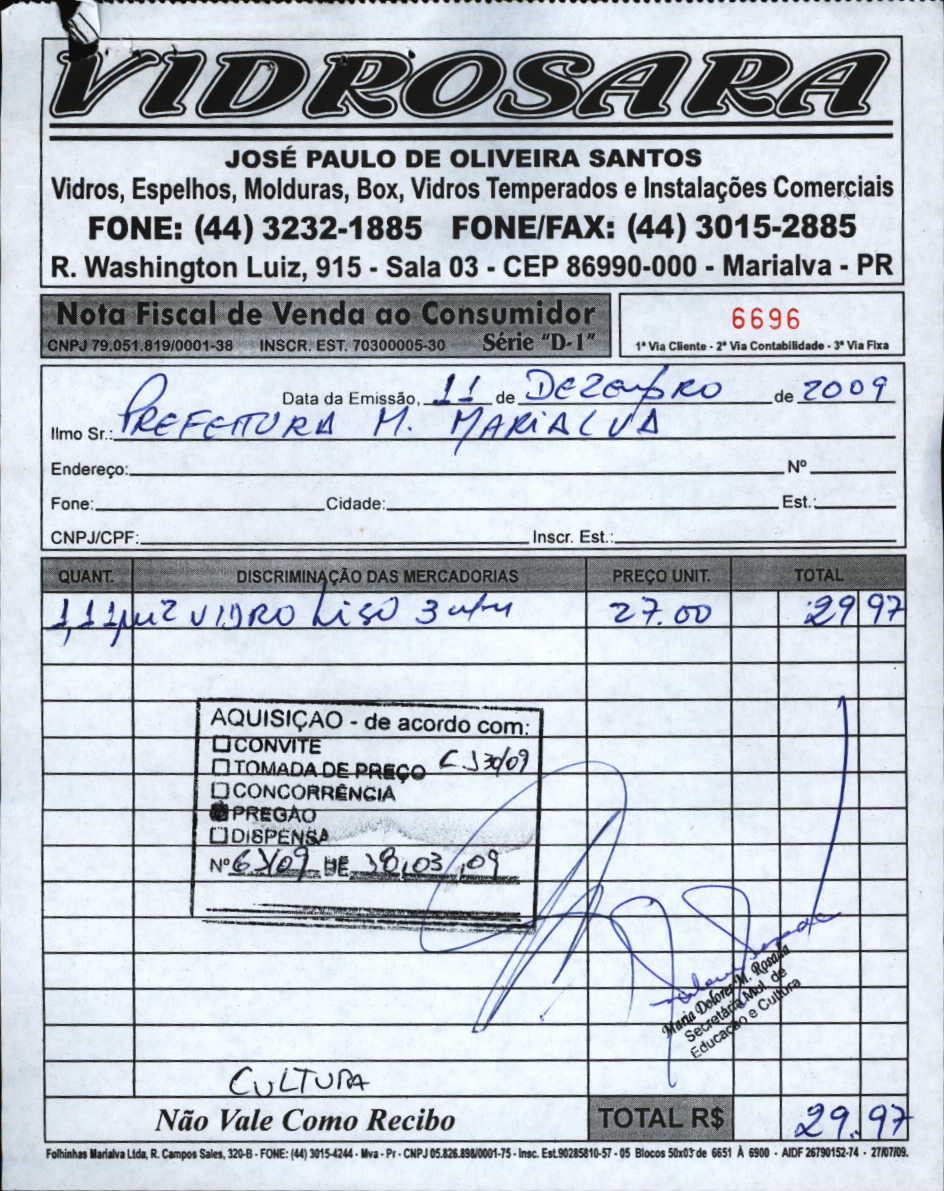 VIDROSARA
JOSÉ PAULO DE OLIVEIRA SANTOS
Vidros, Espelhos, Molduras, Box, Vidros Temperados e Instalações Comerciais
FONE: (44) 3232-1885 FONE/FAX: (44) 3015-2885
R. Washington Luiz, 915 - Sala 03 - CEP 86990-000 - Marialva - PR
Nota Fiscal de Venda ao Consumidor
CNPJ 79.051.819/0001-38 INSCR. EST. 70300005-30 Série "D-1"
6696
1ª Via Cliente - 2ª Via Contabilidade - 3ª Via Fixa
Data da Emissão, 11 de DEZEMBRO de 2009
Ilmo Sr.: PREFEITURA M. MARIALVA
Endereço: Nº
Fone: Cidade: Est.:
CNPJ/CPF: Inscr. Est.:
QUANT. DISCRIMINAÇÃO DAS MERCADORIAS PREÇO UNIT. TOTAL
1,11 m2 VIDRO LISO 3 mm 27.00 29 97
AQUISIÇAO - de acordo com:
CONVITE
TOMADA DE PREÇO
CONCORRÊNCIA
PREGÃO
DISPENSA
Nº DE 18,03,09
Maria Dolores M.
Secretária Mul. de
Educação e Cultura
CULTURA
Não Vale Como Recibo TOTAL R$ 29.97
Folhinhas Marialva Ltda, R. Campos Sales, 320-B - FONE: (44) 3015-4244 - Mva - Pr - CNPJ 05.826.898/0001-75 - Insc. Est.90285810-57 - 05 Blocos 50x03 de 6651 À 6900 - AIDF 26790152-74 - 27/07/09.